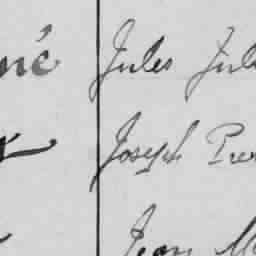 né Jules Jul
Joseph Pier
Jean M